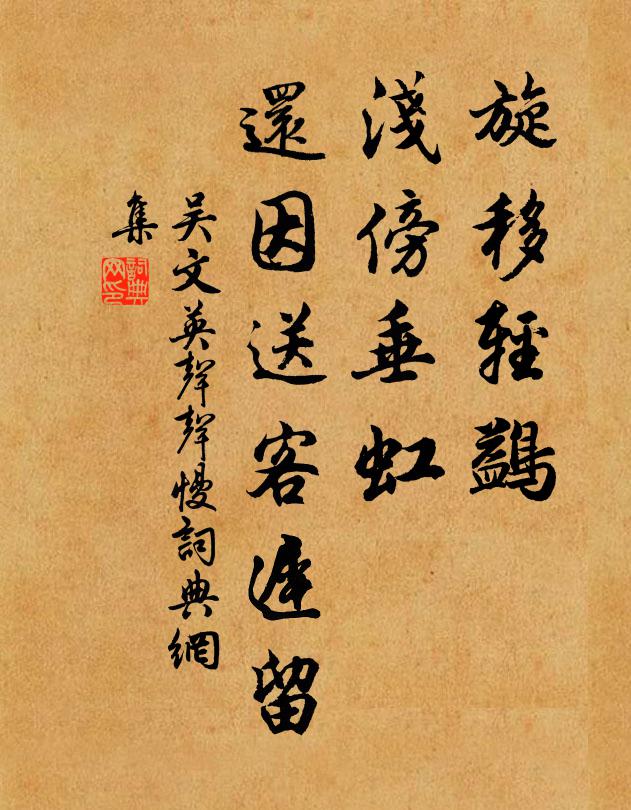 旋移輕鷁
淺傍垂虹
還因送客遲留
吴文英聲聲慢詞典網
集
詞典網印